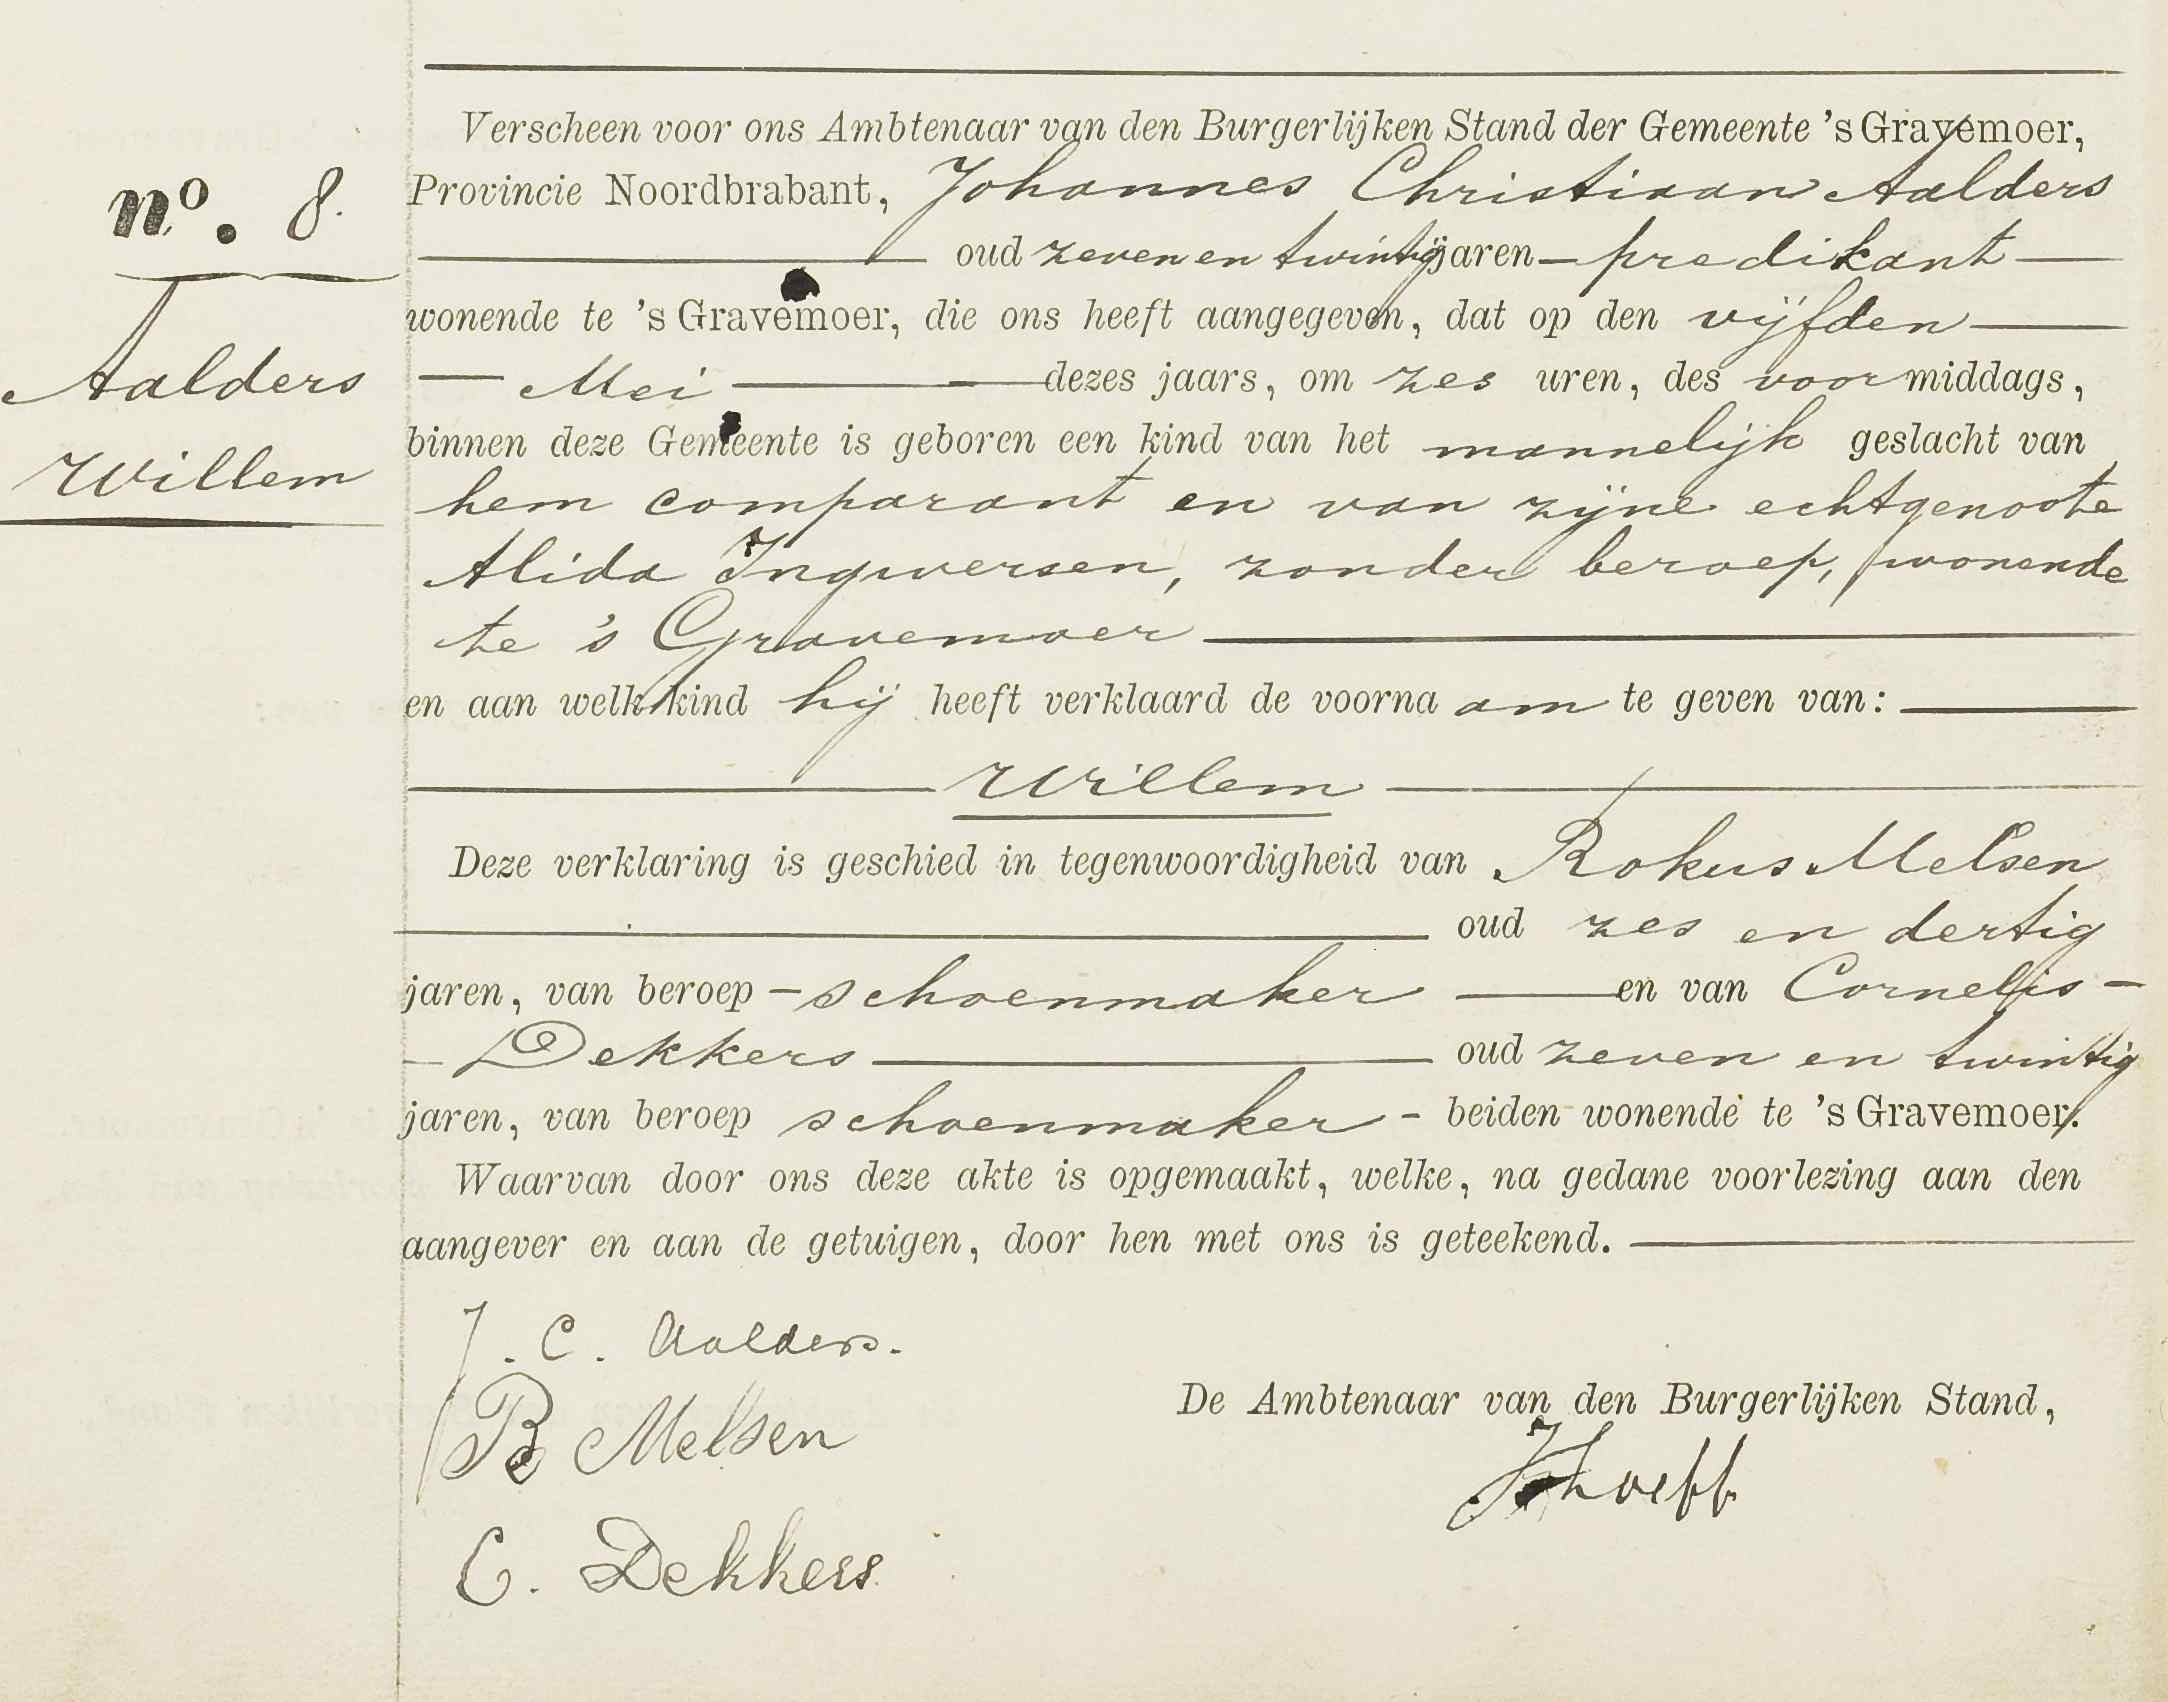 Verscheen voor ons Ambtenaar van den Burgerlijken Stand der Gemeente 's Gravemoer,
no. 8.
Provincie Noordbrabant, Johannes Christiaan Aalders
oud zeven en twintig jaren — predikant —
wonende te 's Gravemoer, die ons heeft aangegeven, dat op den vijfden —
Aalders
— Mei — dezes jaars, om zes uren, des voormiddags,
binnen deze Gemeente is geboren een kind van het mannelijk geslacht van
Willem
hem comparant en van zijne echtgenoote
Alida Ingwersen, zonder beroep, wonende
te 's Gravemoer —
en aan welk kind hij heeft verklaard de voornaam te geven van: —
— Willem —
Deze verklaring is geschied in tegenwoordigheid van Rokus Melsen
— oud zes en dertig
jaren, van beroep — schoenmaker — en van Cornelis —
— Dekkers — oud zeven en twintig
jaren, van beroep schoenmaker - beiden wonende te 's Gravemoer.
Waarvan door ons deze akte is opgemaakt, welke, na gedane voorlezing aan den
aangever en aan de getuigen, door hen met ons is geteekend. —
J. C. Aalders.
De Ambtenaar van den Burgerlijken Stand,
R Melsen
C. Dekkers